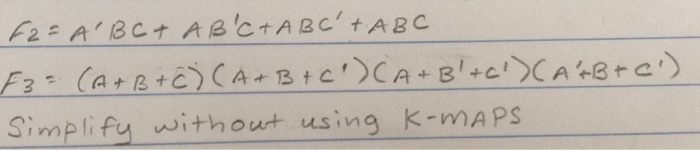 F2 = A'BC + AB'C + ABC' + ABC
F3 = (A+B+C)(A+B+C')(A+B'+C')(A'+B+C')
Simplify without using K-MAPS